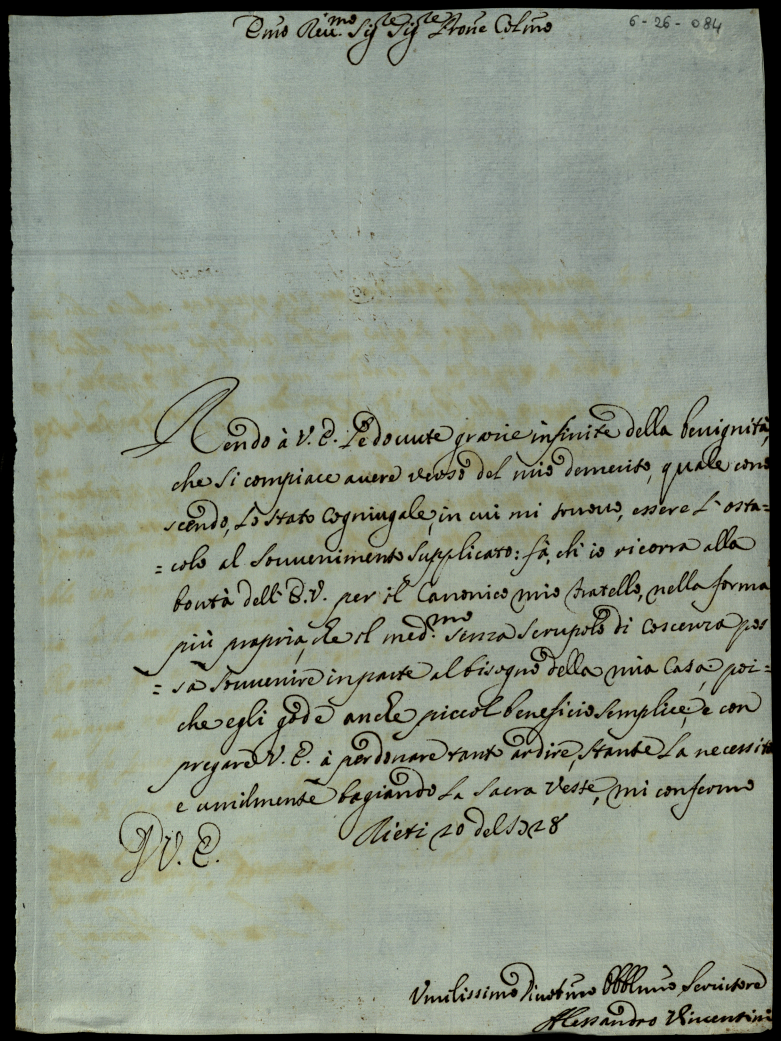 6-26-084
Emo Reu.mo Sigre Sigre Prone Colmo
Rendo à V. E. le douute grazie infinite della benignità,
che si compiace auere verso del mio demerito, quale cono
scendo, lo stato Cogniugale, in cui mi truouo, essere l'osta=
=colo al souuenimento supplicato: fà, ch'io ricorra alla
bontà dell'E.V. per il Canonico mio fratello, nella forma
più propria, che il med.mo senza scrupolo di coscenza pos
=sa souuenire in parte al bisogno della mia Casa, poi=
che egli gode anche piccol beneficio semplice, e con
pregare V. E. à perdonare tant'ardire, stante la necessità
e umilmente bagiando la sacra Veste, mi confermo
D V. E.
Rieti 20 del
Vmilissimo Diuotmo Obblmo Seruitore
Alessandro Vincentini